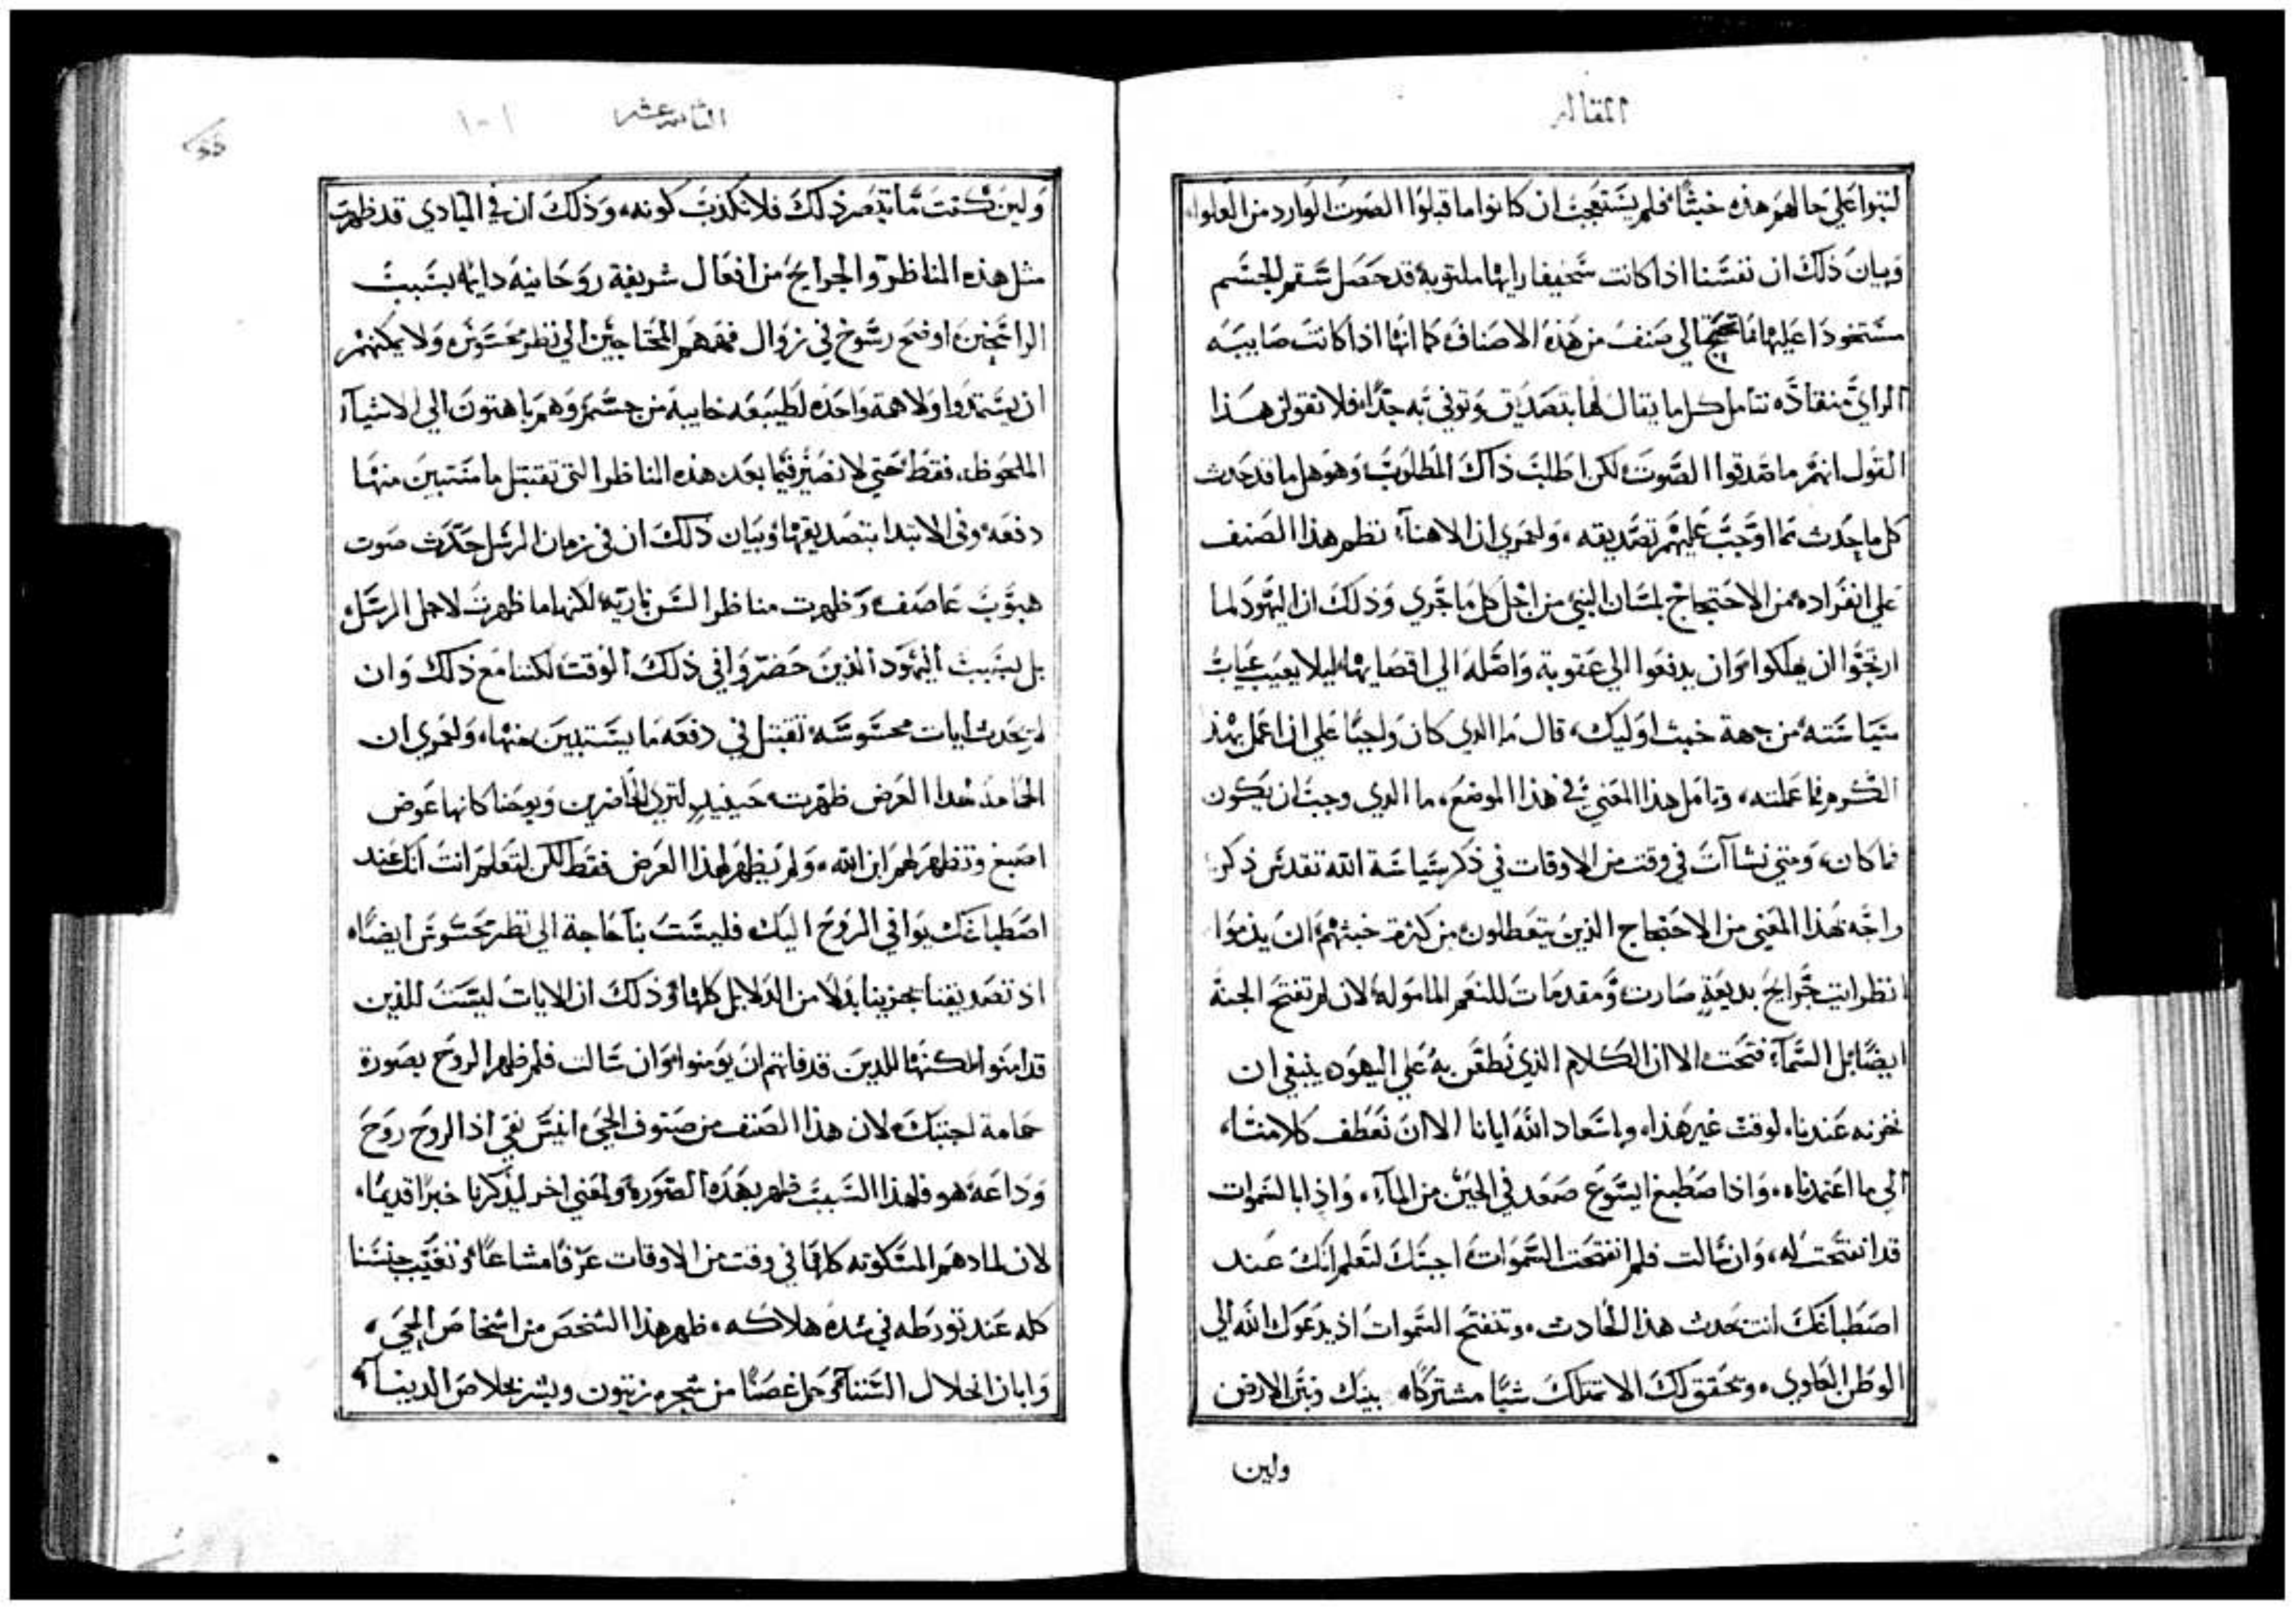 المقاله
لبثوا على حالهم هذه خبثًا فلم يستعجب ان كانوا ما قبلوا الصوت الوارد من العلوا
وبيان ذلك ان نفسنا اذا كانت سخيفا رايها ملتوية قد حصل سقم الجسم
مستحوذا عليها الي صنف من هذه الاصناف كما انها اذا كانت صايبه
الراي منقاده تتامل كل ما يقال لها بتصديق وتوفي به جدًا فلا تقولن هذا
القول انهم ما صدقوا الصوت لكن اطلب ذاك المطلوب وهو هل ما قد حدث
كل ما حدث مما اوجب عليهم تصديقه، ولعمري ان الاهنا نظم هذا الصنف
علي انفراده من الاحتجاج بلسان النبي من اجل كل ما جري وذلك ان اليهود لما
ارتجوا ان يهلكوا وان يدفعوا الي عقوبة واصله الي اقصايها ليلا يعيب عياب
سياسته من جهة خبث اوليك، قال ما الذي كان واجبًا علي ان اعمل بهذا
الكرم فما عملته، وتامل هذا المعني في هذا الموضع، ما الذي وجب ان يكون
فما كان، ومتي نشاآت في وقت من الاوقات في ذكر سياسة الله تقدس ذكره
واجه بهذا المعني من الاحتجاج الذين يتعطلون من كثرة خبثهم ان يذموا
انظر ايت جرايح بديعة صارت ومقدمات للنعم الماموله لان لم تفتح الجنة
ايضًا بل السماء فتحت الا ان الكلام الذي نطقن به علي اليهود ينبغي ان
نخزنه عندنا، لوقت غير هذا، وباسعاد الله ايانا الا ان نعطف كلامنا،
الي ما اعتمدناه، واذا صطبغ ايسوع صعد في الحين من الماء، واذا بالسموات
قد انفتحت له، وان سالت فلم انفتحت السموات اجبتك لتعلم انك عند
اصطباغك انت يحدث هذا الحادث، وتنفتح السموات اذ يدعوك الله الي
الوطن العاوي، ويحقق لك الا تمتلك شيًا مشتركًا، بينك وبين الارض
ولين
الثانيه عشر
١٠١
ولين كنت ما تبصر ذلك فلا تكذب كونه، وذلك ان في المبادي قد ظهرت
مثل هذه المناظر والجرايح من افعال شريفة روحانية دايما بسبب
الراسخين اوضح رسوخ في زوال فهمهم المحتاجين الي نظر محسوس ولا يمكنهم
ان يستمدوا ولا همة واحده لطبيعه خايبة من جسم وهم باهتون الي الاشياء
الملحوظه، فقط حتي لا تصير فيما بعد هذه المناظر التي تقتبل ما تستبين منها
دفعة وفي الابتدا بتصديقها وبيان ذلك ان في زمان الرسل حدث صوت
هبوب عاصف وظهرت مناظر السن ناريه لكنها ما ظهرت لاجل الرسل
بل بسبب اليهود الذين حضروا في ذلك الوقت لكننا مع ذلك وان
لم يحدث ايات محسوسة نقتبل في دفعه ما يستبين منها، ولعمري ان
الحامة هذا العرض ظهرت حينيد لتري للحاضرين ويوحنا كانها عوض
اصبع وتظهر لهم ابن الله، ولم يظهر لهذا العرض فقط لكن لتعلم انت انك عند
اصطباغك يوافي الروح اليك، فليست بنا حاجة الي نظر محسوس ايضًا،
اذ تصديقنا يجزينا بدلا من الدلايل كلها وذلك ان الايات ليست للذين
قد امنوا لكنها للذين قد فاتهم ان يومنوا، وان سالت فلم ظهر الروح بصورة
حمامة اجبتك لان هذا الصنف من صنوف الحي انيس نقي اذ الروح روح
وداعة هو فلهذا السبب ظهر بهذه الصورة ولمعني اخر ليذكرنا خبرًا قديمًا،
لان لما دهم المسكونه كلها في وقت من الاوقات غرقًا مشاعًا وتغيب جنسنا
كله عند تورطه في شدة هلاكه، ظهر هذا الشخص من اشخاص الحي،
وابان انحلال الشتاء وحمل غصنًا من شجره زيتون وبشر بخلاص الدنيا